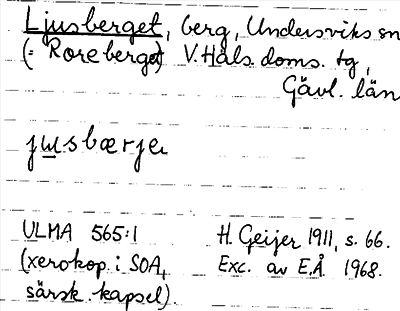 Ljusberget, berg, Undersviks sn
(= Roreberget) V. Häls. doms. tg,
Gävl. län
jusbærje
ULMA 565:1 H. Geijer 1911, s. 66.
(xerokop. i SOA, Exc. av E.Å 1968.
särsk. kapsel).